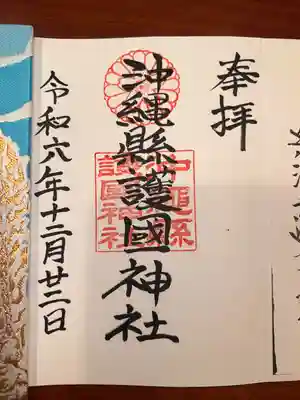 奉拝
沖縄縣護國神社
令和六年十二月廿二日